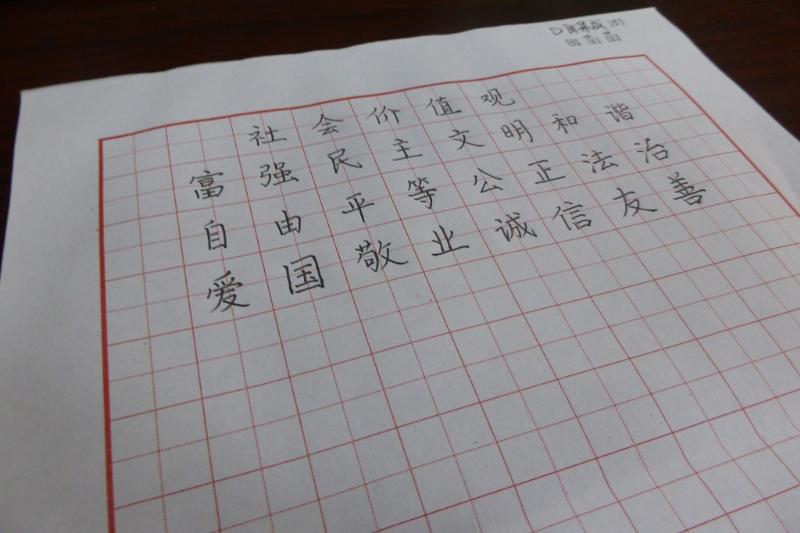 社会价值观
富强民主文明和谐
自由平等公正法治
爱国敬业诚信友善